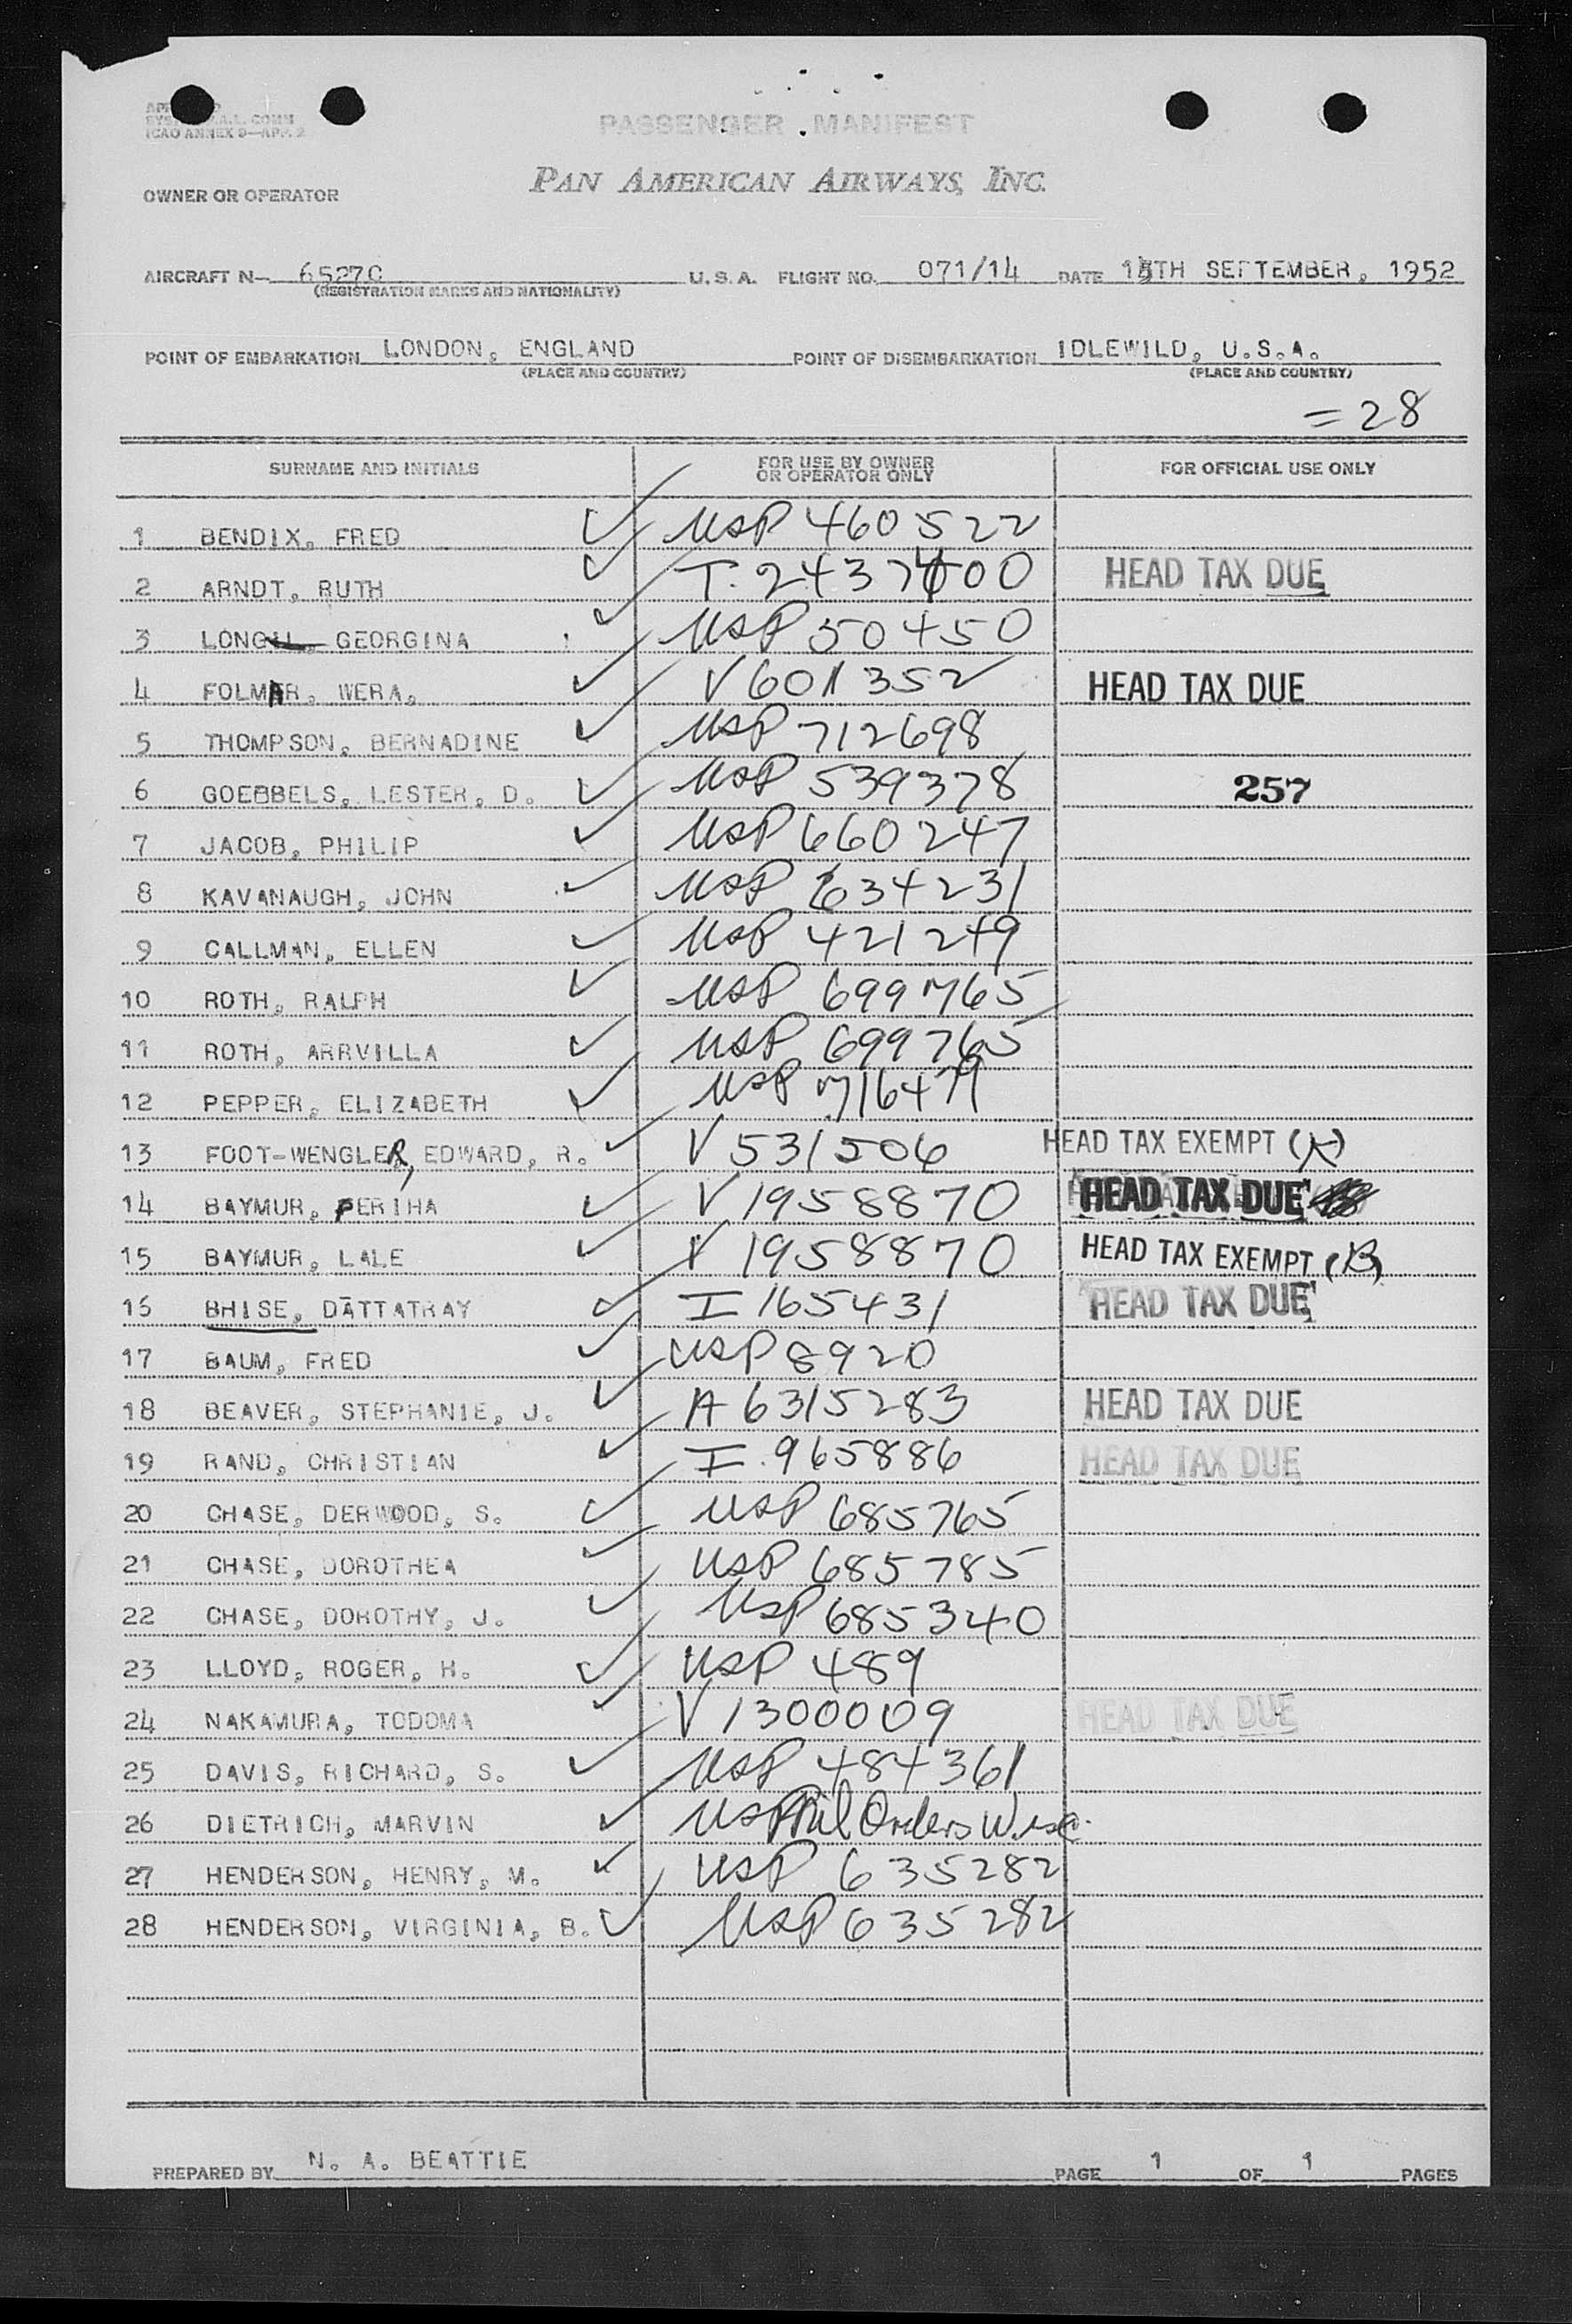 PASSENGER MANIFEST
ICAO ANNEX 9—APP. 2
OWNER OR OPERATOR PAN AMERICAN AIRWAYS, INC.
AIRCRAFT N— 6527C U.S.A. FLIGHT NO. 071/14 DATE 15TH SEPTEMBER, 1952
(REGISTRATION MARKS AND NATIONALITY)
POINT OF EMBARKATION LONDON, ENGLAND POINT OF DISEMBARKATION IDLEWILD, U.S.A.
(PLACE AND COUNTRY) (PLACE AND COUNTRY)
=28
SURNAME AND INITIALS FOR USE BY OWNER OR OPERATOR ONLY FOR OFFICIAL USE ONLY
1 BENDIX, FRED USP 460522
2 ARNDT, RUTH T. 2437400 HEAD TAX DUE
3 LONG GEORGINA USP 50450
4 FOLMAR, WERA, V 601352 HEAD TAX DUE
5 THOMPSON, BERNADINE USP 712698
6 GOEBBELS, LESTER, D. USP 539378 257
7 JACOB, PHILIP USP 660247
8 KAVANAUGH, JOHN USP 634231
9 CALLMAN, ELLEN USP 421249
10 ROTH, RALPH USP 699765
11 ROTH, ARRVILLA USP 699765
12 PEPPER, ELIZABETH USP 716479
13 FOOT-WENGLER, EDWARD, R. V 531506 HEAD TAX EXEMPT
14 BAYMUR, PERIHA V 1958870 HEAD TAX DUE
15 BAYMUR, LALE V 1958870 HEAD TAX EXEMPT (B)
16 BHISE, DATTATRAY I 165431 HEAD TAX DUE
17 BAUM, FRED USP 8920
18 BEAVER, STEPHANIE, J. A 6315283 HEAD TAX DUE
19 RAND, CHRISTIAN I. 965886 HEAD TAX DUE
20 CHASE, DERWOOD, S. USP 685765
21 CHASE, DOROTHEA USP 685785
22 CHASE, DOROTHY, J. USP 685340
23 LLOYD, ROGER, H. USP 489
24 NAKAMURA, TODOMA V 1300009 HEAD TAX DUE
25 DAVIS, RICHARD, S. USP 484361
26 DIETRICH, MARVIN Mil Orders
27 HENDERSON, HENRY, M. USP 635282
28 HENDERSON, VIRGINIA, B. USP 635282
PREPARED BY N. A. BEATTIE PAGE 1 OF 1 PAGES